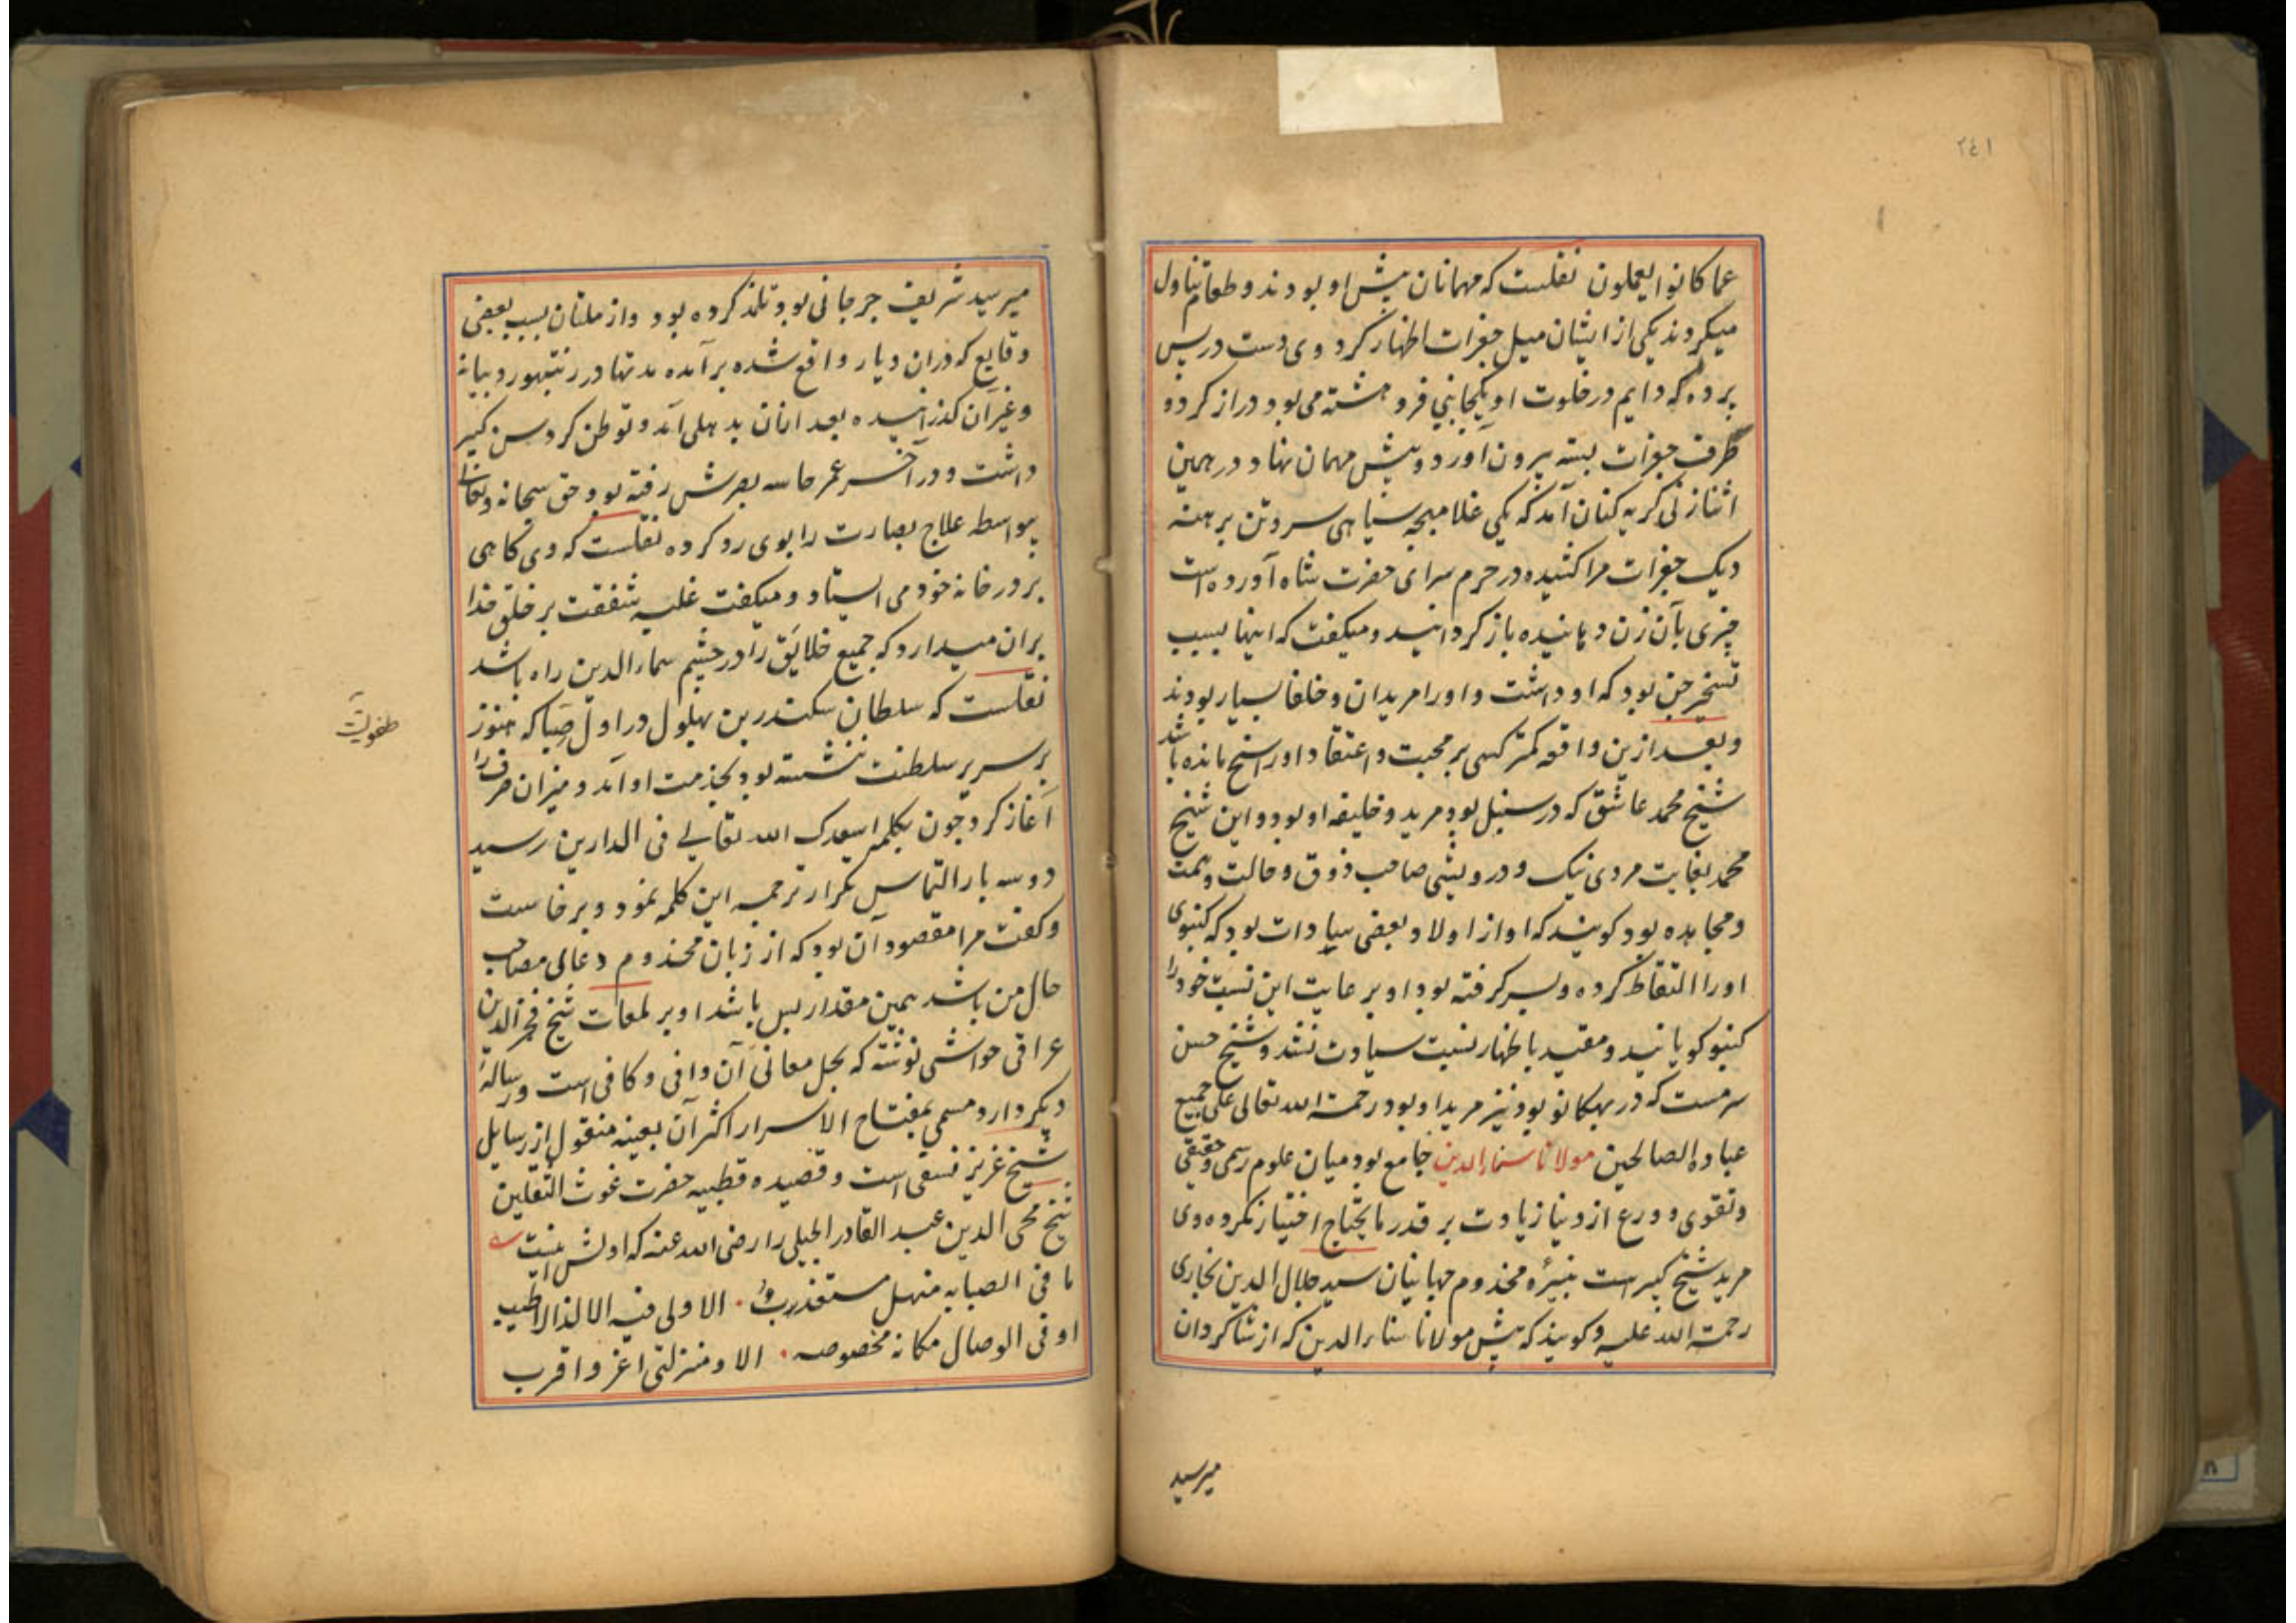 ٢٤١
عما كانوا يعملون نقلست که مهمانان پیش او بودند و طعام تناول
میکردند یکی از ایشان میل جغرات اظهار کرد وی دست در پس
پرده که دایم در خلوت او بیکجانبی فرو هشته می بود دراز کرد و
ظرف جغرات بسته بیرون آورد و پیش مهمان نهاد و در همین
اثنا زنی کریه کنان آمد که یکی غلام بچه سیاهی سر و تن برهنه
دیک جغرات مرا کشیده در حرم سرای حضرت شاه آورده است
چیزی بآن زن دهانیده باز کردانید و میکفت که اینها بسبب
تسخیر جن بود که او داشت و او را مریدان و خلفا بسیار بودند
و بعد ازین واقعه کمتر کسی بر محبت و اعتقاد او راسخ مانده باشد
شیخ محمد عاشق که در سنبل بود مرید و خلیفه او بود و این شیخ
محمد بغایت مردی نیک و درویشی صاحب ذوق و حالت و همت
و مجاهده بود کویند که او از اولاد بعضی سادات بود که کنبوی
او را التقاط کرده و پسر کرفته بود او برعایت این نسبت خود را
کنبو کویانید و مقید باظهار نسبت سیادت نشد و شیخ حسن
سرمست که در بهکانو بود نیز مرید او بود رحمة الله تعالی علی جمیع
عباده الصالحین مولانا سماء الدین جامع بود میان علوم رسمی و حقیقی
و تقوی و ورع از دنیا زیادت بر قدر ما یحتاج اختیار نکرده وی
مرید شیخ کبیر است نبیرۀ مخدوم جهانیان سید جلال الدین بخاری
رحمة الله علیه و کویند که پیش مولانا سناء الدین که از شاکردان
میر سید
میر سید شریف جرجانی بود تلمذ کرده بود و از ملتان بسبب بعضی
وقایع که دران دیار واقع شده برآمده مدتها در رنتهبور و بیانه
و غیر آن کذرانیده بعد ازان بدهلی آمد و توطن کرد سن کبیر
داشت و در آخر عمر حاسه بصرش رفته بود حق سبحانه و تعالی
بیواسطه علاج بصارت را بوی رد کرده نقلست که وی کاهی
بر در خانه خود می ایستاد و میکفت غلبه شفقت بر خلق خدا
بران میدارد که جمیع خلایق را در چشم سماء الدین راه باشد
نقلست که سلطان سکندر بن بهلول در اول صبا که هنوز
طفولیت
بر سریر سلطنت ننشسته بود بخدمت او آمد و میزان صرف را
آغاز کرد چون بکلمه اسعدک الله تعالی فی الدارین رسید
دو سه بار التماس تکرار ترجمه این کلمه نمود و برخاست
و کفت مرا مقصود آن بود که از زبان مخدوم دعائی مصاحب
حال من باشد همین مقدار بس باشد او بر لمعات شیخ فخر الدین
عراقی حواشی نوشته که بحل معانی آن وافی و کافی است و رساله
دیکر دارد مسمی بمفتاح الاسرار اکثر آن بعینه منقول از رسایل
شیخ عزیز نسفی است و قصیده قطبیه حضرت غوث الثقلین
شیخ محی الدین عبد القادر الجیلی را رضی الله عنه که اولش اینست
ما فی الصبابه منهل مستعذب · الا ولی فیه الالذ الاطیب
او فی الوصال مکانه مخصوصه · الا و منزلتی اعز و اقرب